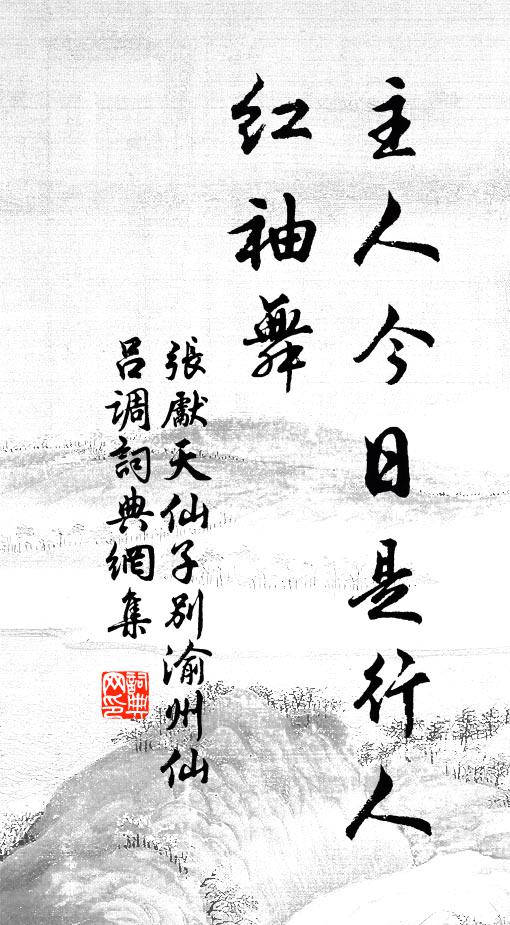 主人今日是行人
红袖舞
張獻天仙子别渝州仙
吕调詞典網集
詞典
网印